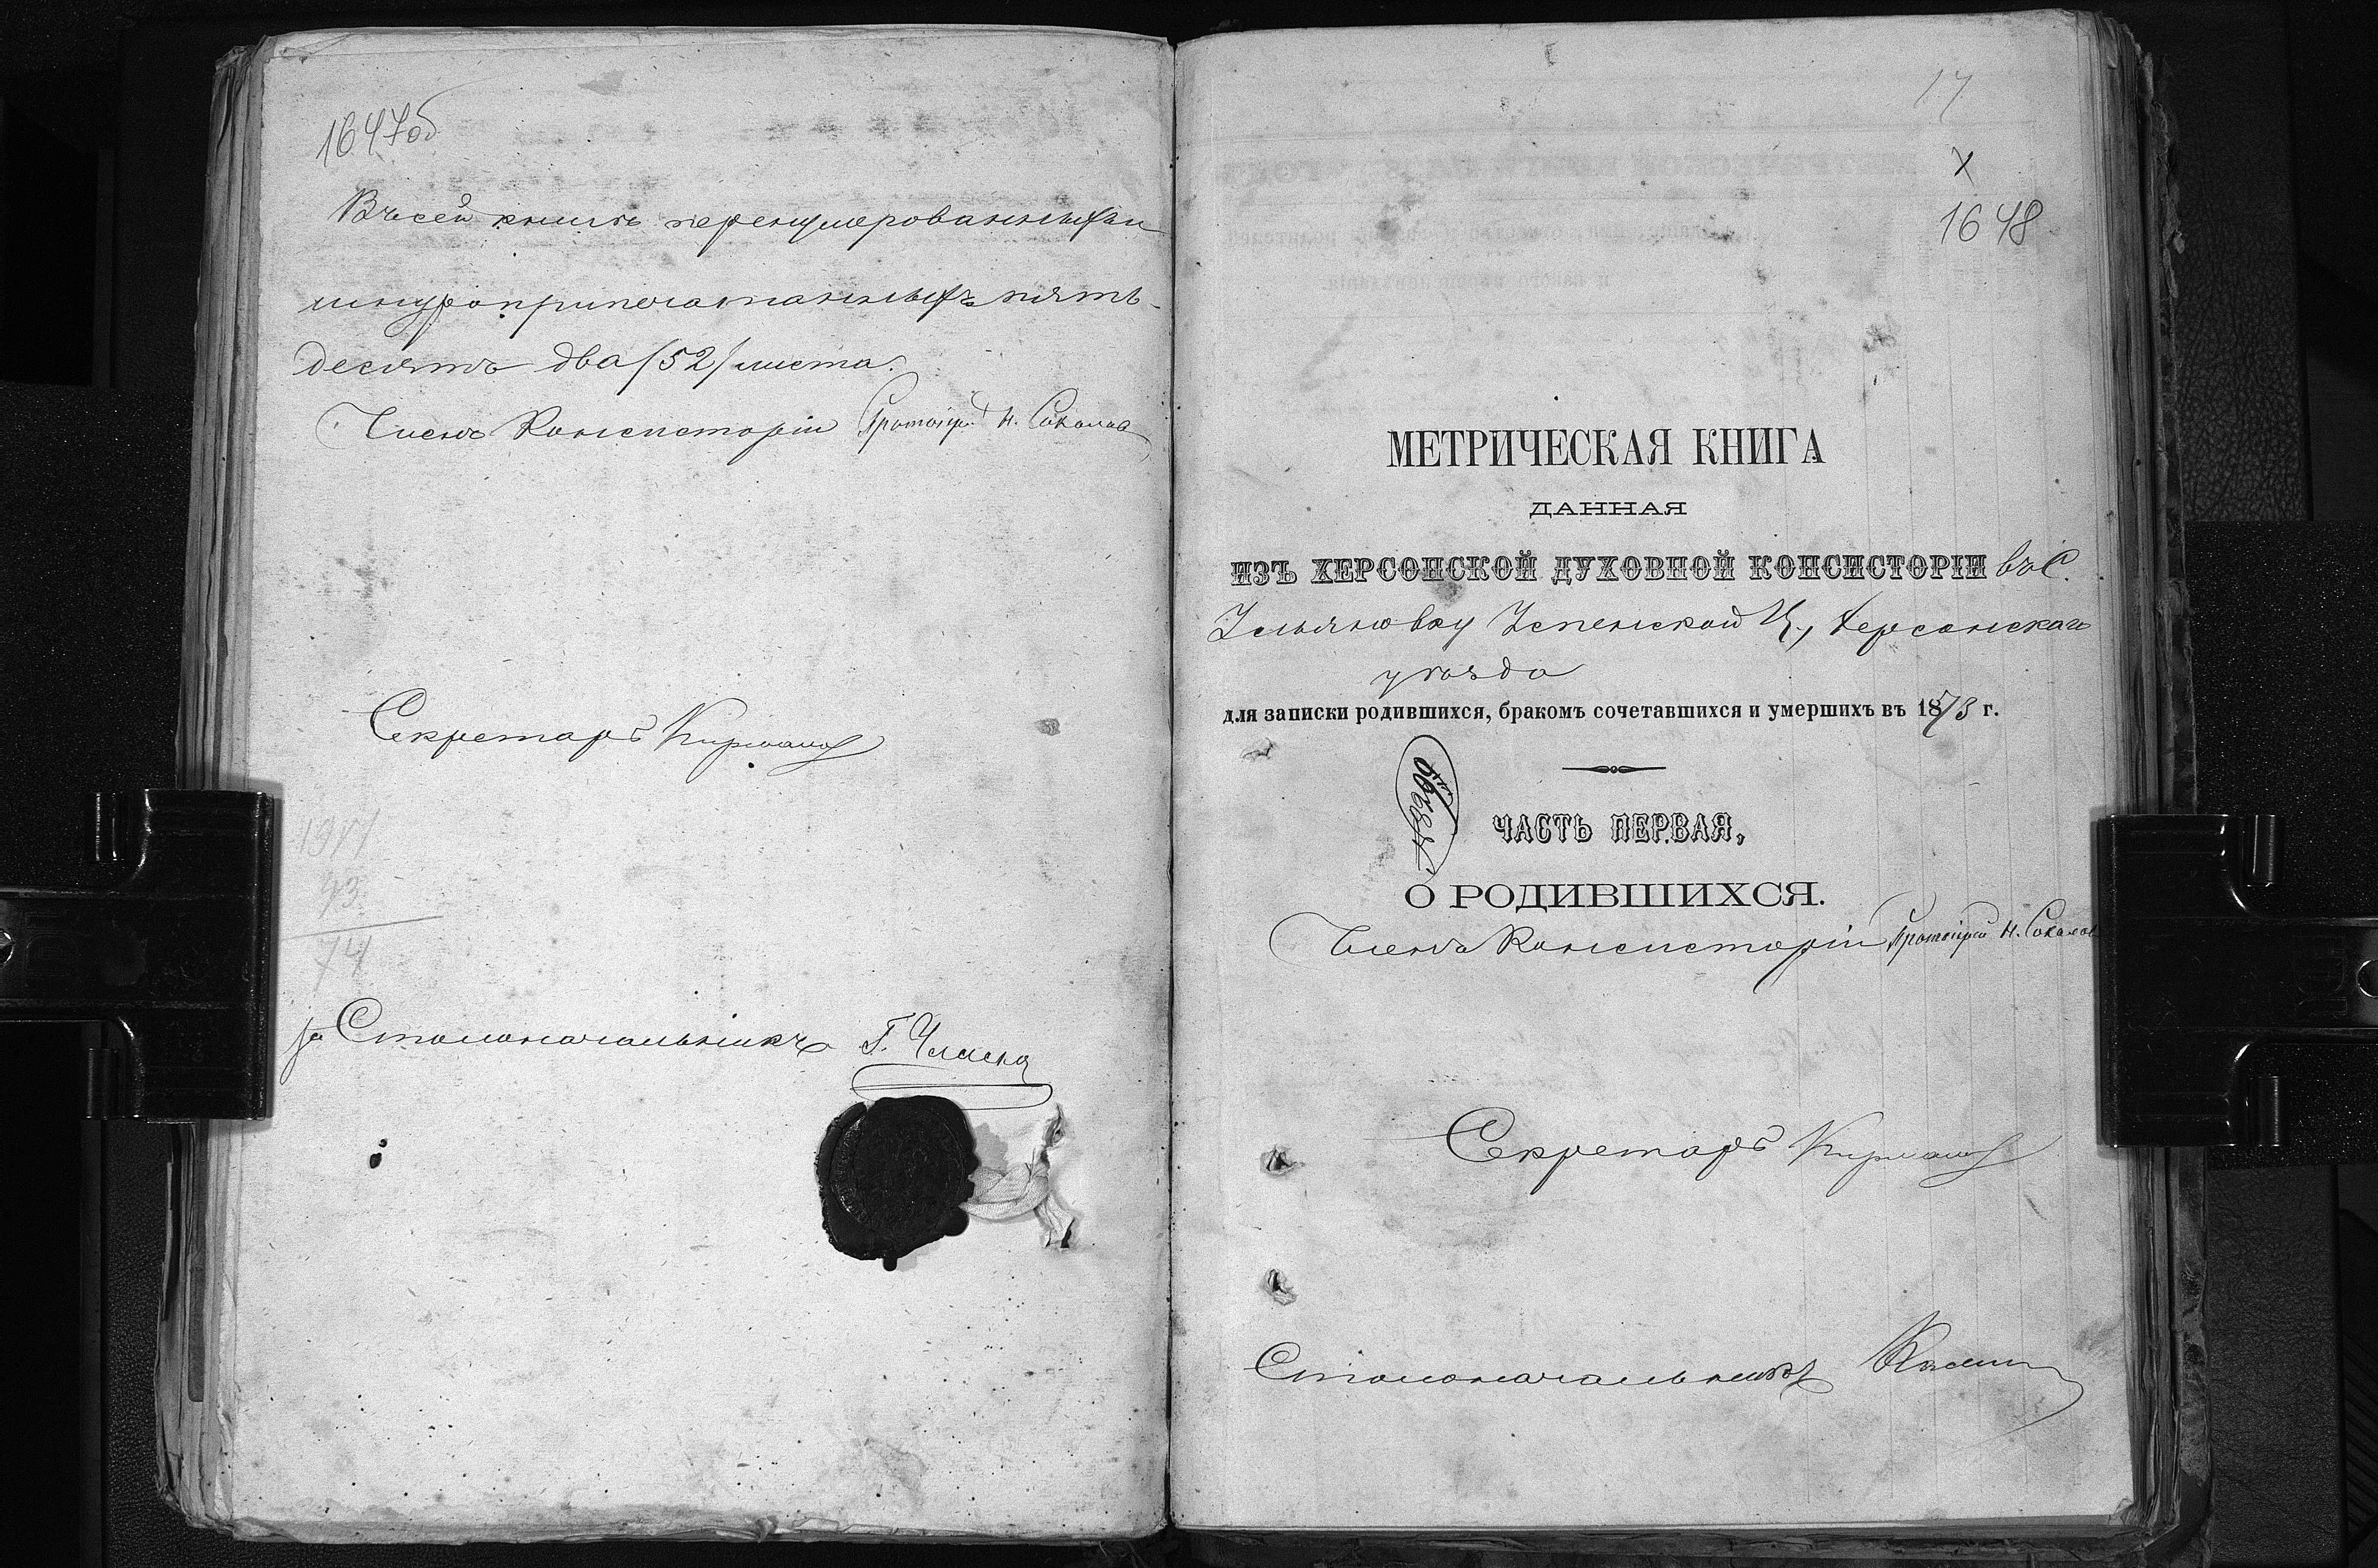 1647об
Въ сей книгѣ перенумерованныхъ и
шнуроприпечатанныхъ пять-
десятъ два /52/ листа.
Членъ Консисторіи Протоіерей Н. Соколов
Секретарь
74
за Столоначальника Г.
17
X
1648
МЕТРИЧЕСКАЯ КНИГА
ДАННАЯ
ИЗЪ ХЕРСОНСКОЙ ДУХОВНОЙ КОНСИСТОРІИ въ С.
Ульяновку Успенской Ц., Херсонскаго
уѣзда
для записки родившихся, бракомъ сочетавшихся и умершихъ въ 1873 г.
ЧАСТЬ ПЕРВАЯ,
О РОДИВШИХСЯ.
Членъ Консисторіи Протоіерей Н. Соколов
Секретарь
Столоначальникъ